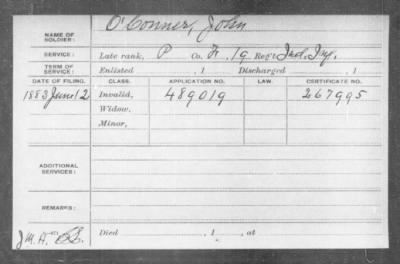 O'Conner, John
NAME OF
SOLDIER:
SERVICE: Late rank, P Co. F, 19 Reg't Ind. Inf.
TERM OF
SERVICE: Enlisted , 1 Discharged , 1
DATE OF FILING. CLASS. APPLICATION NO. LAW. CERTIFICATE NO.
1883 June 12 Invalid, 489019 267995
Widow,
Minor,
ADDITIONAL
SERVICES:
REMARKS:
J.M.H.
Died , 1 , at